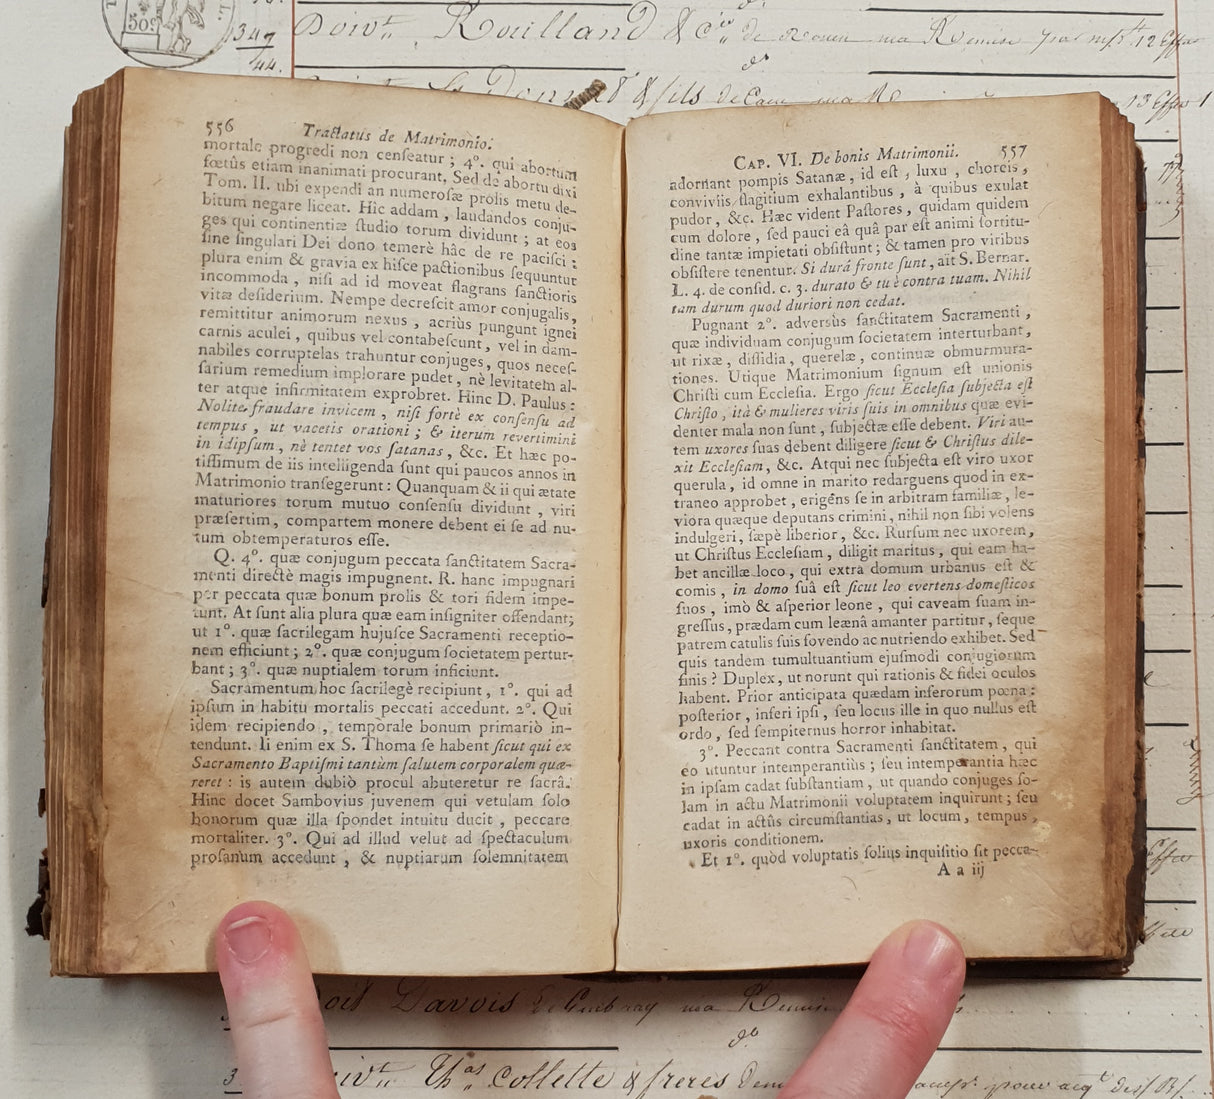 50c
347
44.
Doivt. Rouilland & Cie de Rouen ma Remise
12 Effet
& fils de Caen
13 Effet
556
Tractatus de Matrimonio.
mortale progredi non censeatur ; 4°. qui abortum
fœtûs etiam inanimati procurant, Sed de abortu dixi
Tom. II. ubi expendi an numerosæ prolis metu de-
bitum negare liceat. Hic addam , laudandos conju-
ges qui continentiæ studio torum dividunt ; at eos
sine singulari Dei dono temerè hâc de re pacisci :
plura enim & gravia ex hisce pactionibus sequuntur
incommoda , nisi ad id moveat flagrans sanctioris
vitæ desiderium. Nempe decrescit amor conjugalis,
remittitur animorum nexus , acriùs pungunt ignei
carnis aculei , quibus vel contabescunt, vel in dam-
nabiles corruptelas trahuntur conjuges, quos neces-
sarium remedium implorare pudet, nè levitatem al-
ter atque infirmitatem exprobret. Hinc D. Paulus :
Nolite fraudare invicem , nisi fortè ex consensu ad
tempus , ut vacetis orationi ; & iterum revertimini
in idipsum, nè tentet vos satanas, &c. Et hæc po-
tissimum de iis intelligenda sunt qui paucos annos in
Matrimonio transegerunt : Quanquam & ii qui ætate
maturiores torum mutuo consensu dividunt , viri
præsertim, compartem monere debent ei se ad nu-
tum obtemperaturos esse.
Q. 4°. quæ conjugum peccata sanctitatem Sacra-
menti directè magis impugnent. R. hanc impugnari
per peccata quæ bonum prolis & tori fidem impe-
tunt. At sunt alia plura quæ eam insigniter offendant;
ut 1°. quæ sacrilegam hujusce Sacramenti receptio-
nem efficiunt ; 2°. quæ conjugum societatem pertur-
bant ; 3°. quæ nuptialem torum inficiunt.
Sacramentum hoc sacrilegè recipiunt , 1°. qui ad
ipsum in habitu mortalis peccati accedunt. 2°. Qui
idem recipiendo , temporale bonum primariò in-
tendunt. Ii enim ex S. Thoma se habent sicut qui ex
Sacramento Baptismi tantùm salutem corporalem quæ-
reret : is autem dubiò procul abuteretur re sacrâ.
Hinc docet Sambovius juvenem qui vetulam solo
bonorum quæ illa spondet intuitu ducit , peccare
mortaliter. 3°. Qui ad illud velut ad spectaculum
profanum accedunt , & nuptiarum solemnitatem
CAP. VI. De bonis Matrimonii.
557
adornant pompis Satanæ, id est , luxu , choreis ,
conviviis flagitium exhalantibus , à quibus exulat
pudor , &c. Hæc vident Pastores , quidam quidem
cum dolore , sed pauci eâ quâ par est animi fortitu-
dine tantæ impietati obsistunt ; & tamen pro viribus
obsistere tenentur. Si durâ fronte sunt, ait S. Bernar.
L. 4. de consid. c. 3. durato & tu è contra tuam. Nihil
tam durum quod duriori non cedat.
Pugnant 2°. adversùs sanctitatem Sacramenti ,
quæ individuam conjugum societatem interturbant,
ut rixæ, dissidia, querelæ, continuæ obmurmura-
tiones. Utique Matrimonium signum est unionis
Christi cum Ecclesia. Ergo sicut Ecclesia subjecta est
Christo , ità & mulieres viris suis in omnibus quæ evi-
denter mala non sunt , subjectæ esse debent. Viri au-
tem uxores suas debent diligere sicut & Christus dile-
xit Ecclesiam, &c. Atqui nec subjecta est viro uxor
querula , id omne in marito redarguens quod in ex-
traneo approbet , erigens se in arbitram familiæ, le-
viora quæque deputans crimini, nihil non sibi volens
indulgeri, sæpè liberior, &c. Rursum nec uxorem,
ut Christus Ecclesiam, diligit maritus, qui eam ha-
bet ancillæ loco , qui extra domum urbanus est &
comis , in domo suâ est sicut leo evertens domesticos
suos, imò & asperior leone , qui caveam suam in-
gressus, prædam cum leænâ amanter partitur, seque
patrem catulis suis fovendo ac nutriendo exhibet. Sed
quis tandem tumultuantium ejusmodi conjugiorum
finis ? Duplex, ut norunt qui rationis & fidei oculos
habent. Prior anticipata quædam inferorum pœna :
posterior , inferi ipsi , seu locus ille in quo nullus est
ordo , sed sempiternus horror inhabitat.
3°. Peccant contra Sacramenti sanctitatem, qui
eo utuntur intemperantiùs ; seu intemperantia hæc
in ipsam cadat substantiam, ut quando conjuges so-
lam in actu Matrimonii voluptatem inquirunt ; seu
cadat in actûs circumstantias, ut locum, tempus ,
uxoris conditionem.
Et 1°. quòd voluptatis solius inquisitio sit pecca-
A a iij
Doit Davois de Cambray ma Remise
Doivt. Thas Collette & freres